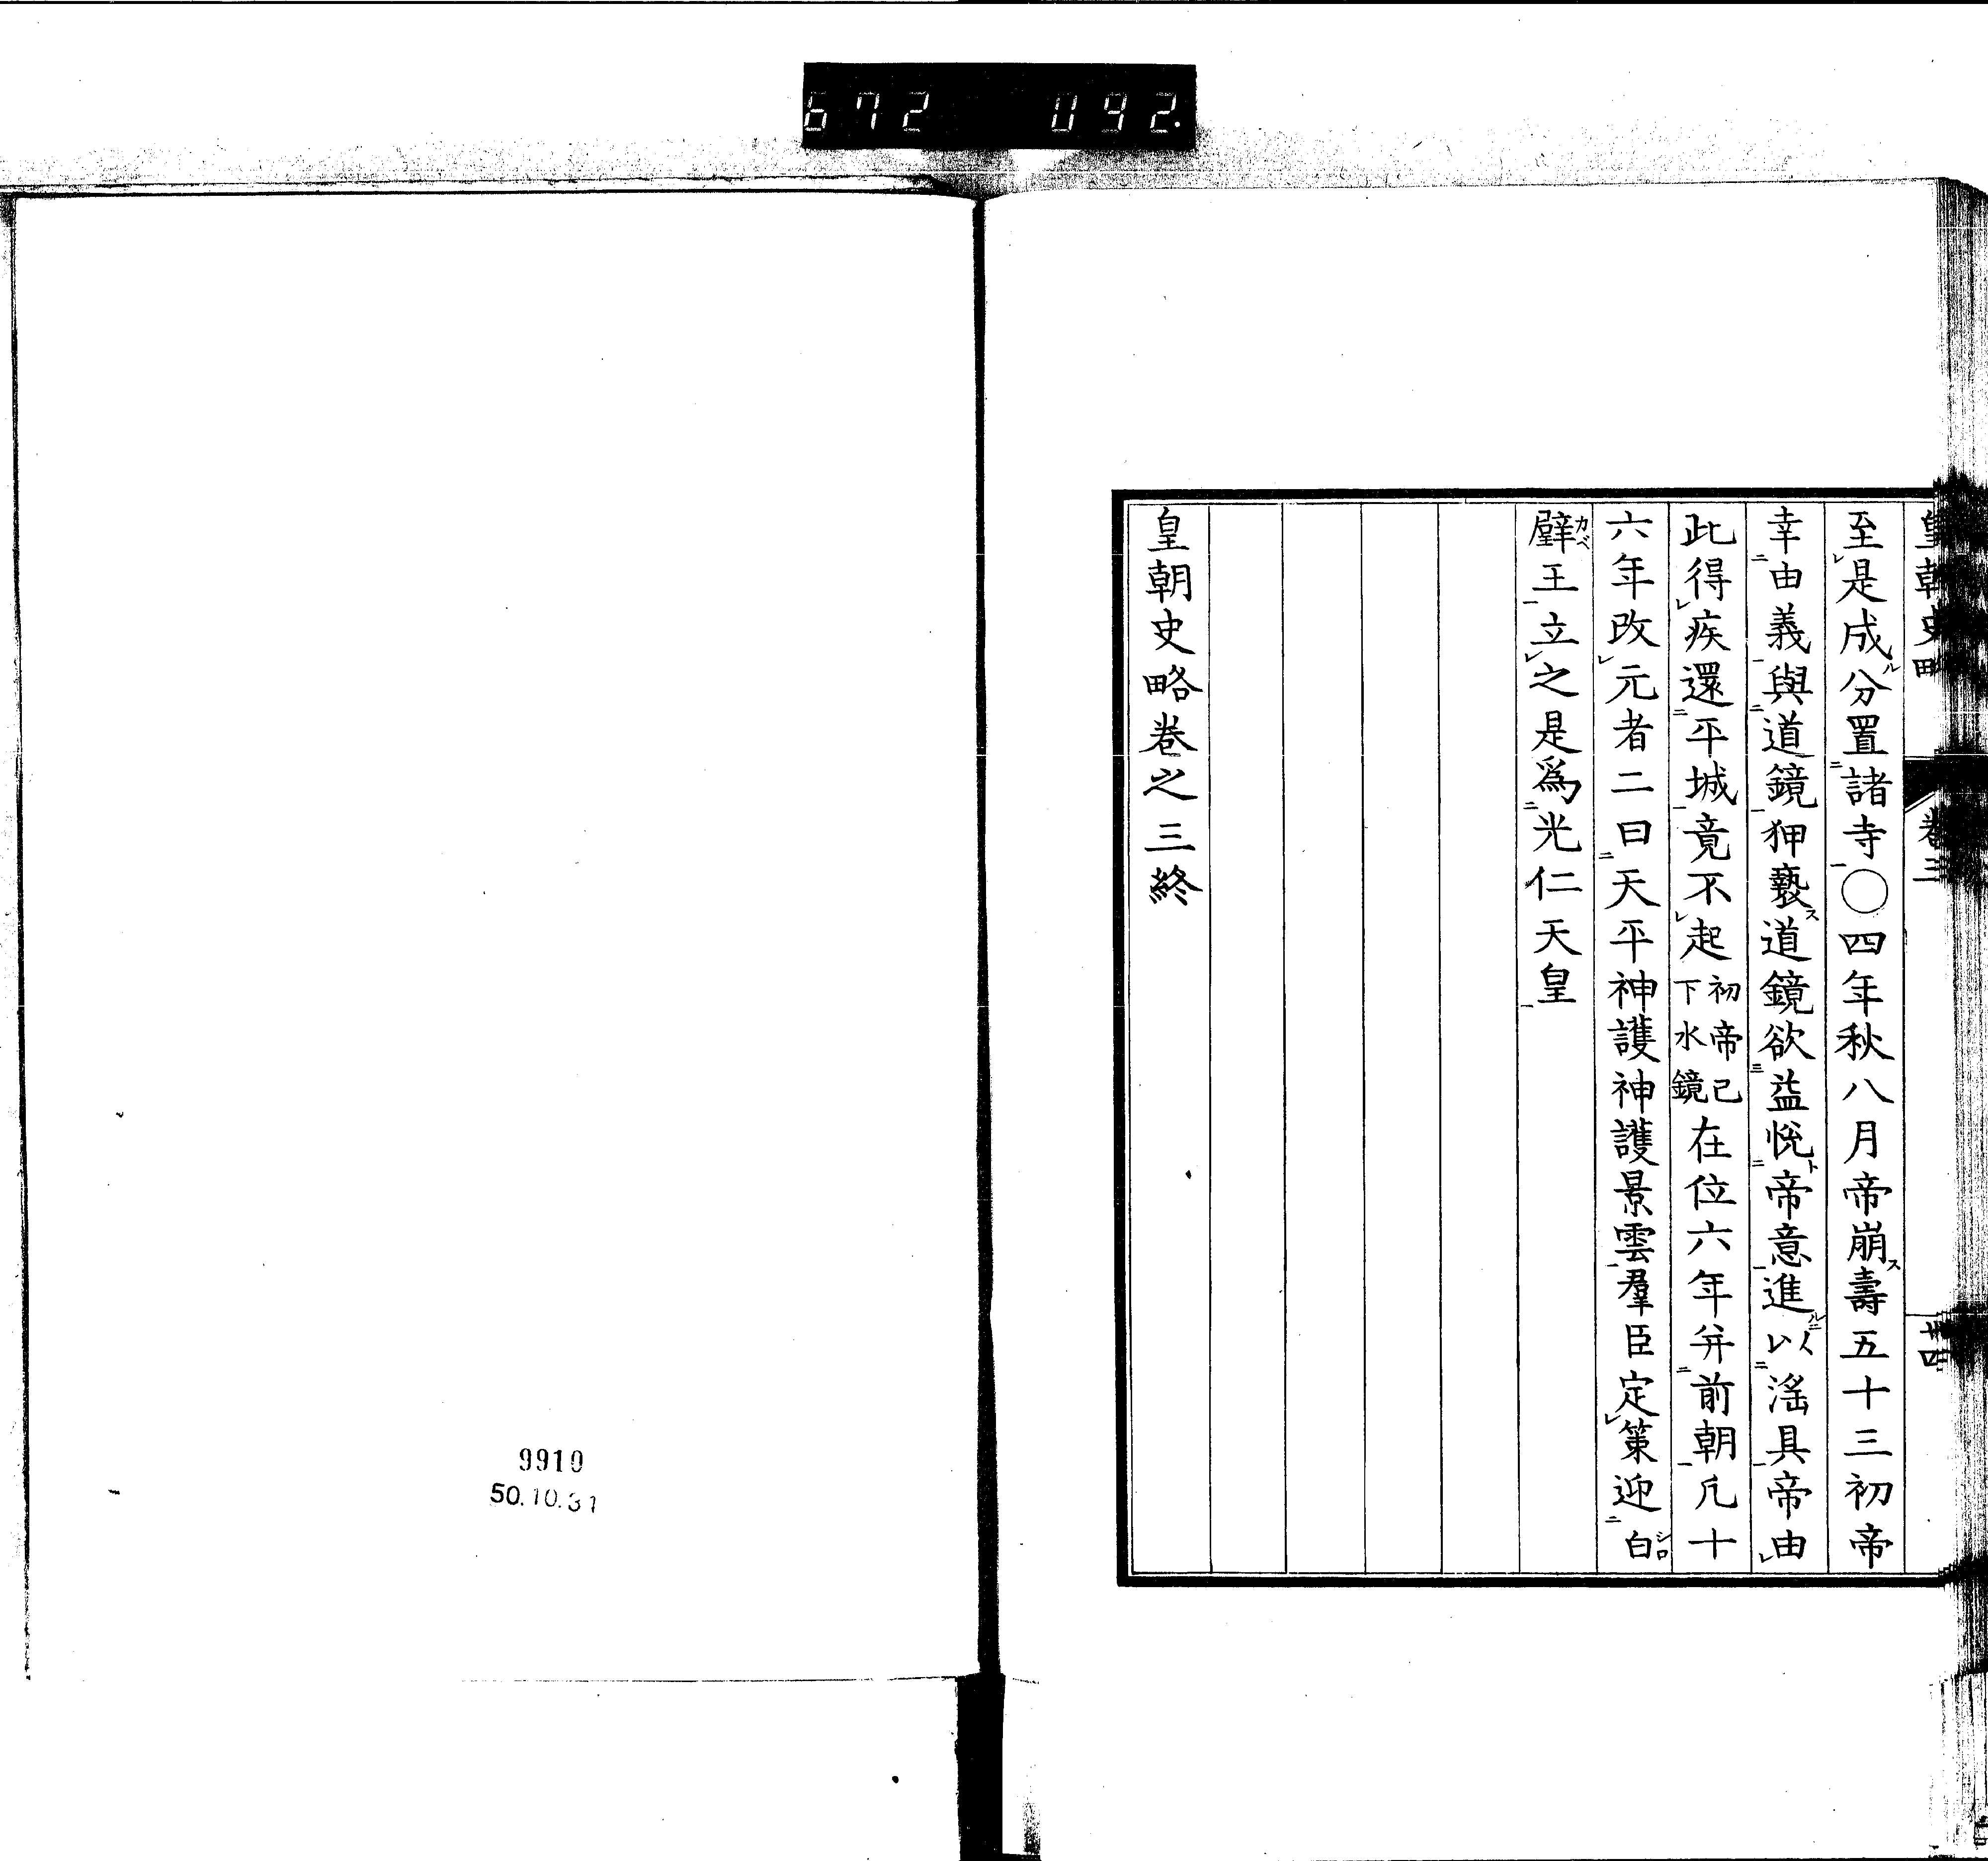 672 092.
皇朝史略 卷三 廿四
至是成分置諸寺○四年秋八月帝崩壽五十三初帝
幸由義與道鏡狎褻道鏡欲益悅帝意進以淫具帝由
此得疾還平城竟不起初帝已下水鏡在位六年并前朝凡十
六年改元者二曰天平神護神護景雲羣臣定策迎白
壁王立之是爲光仁天皇
皇朝史略卷之三終
9910
50.10.31